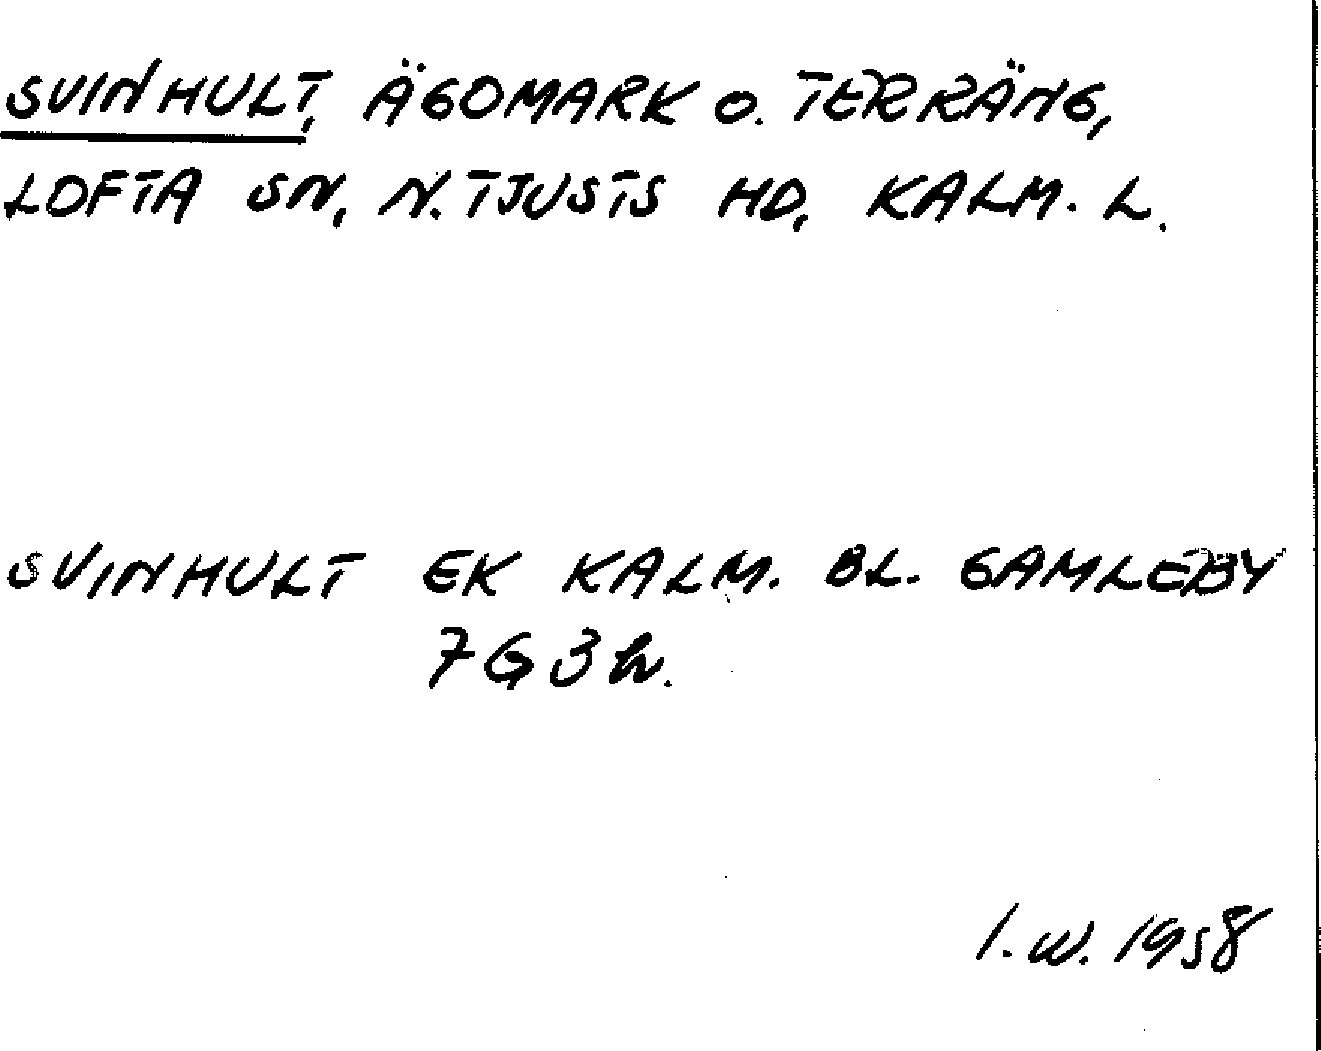 SVINHULT, ÄGOMARK O. TERRÄNG,
LOFTA SN, N. TJUSTS HD, KALM. L.
SVINHULT EK KALM. BL. GAMLEBY
7G3h.
I.W. 1958